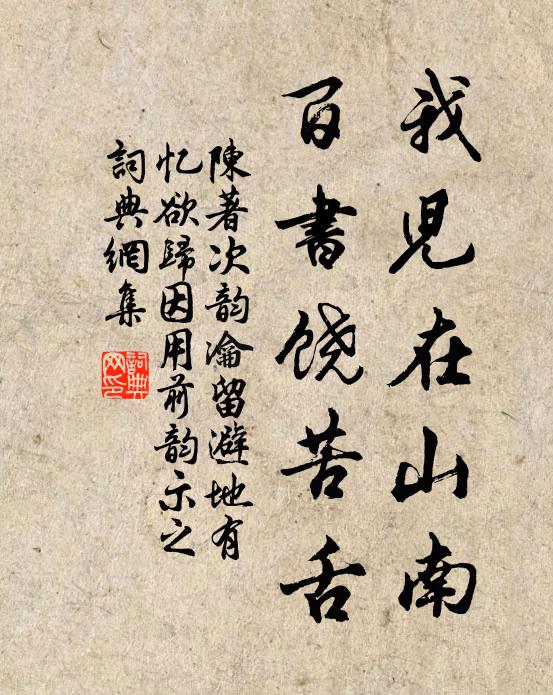 我児在山南
百書饶苦舌
陳著次韵瀹留避地有
忆欲歸因用前韵示之
詞典網集
詞典網印